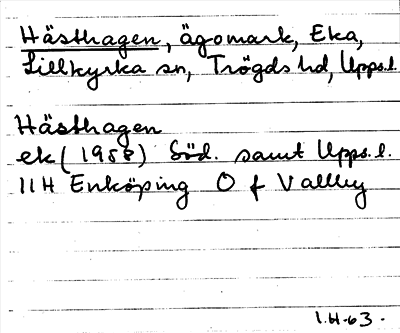 Hästhagen, ägomark, Eka,
Lillkyrka sn, Trögds hd, Upps.l.
Hästhagen
ek (1958) Söd. samt Upps.l.
11H Enköping O f Vallby
1.H.63.